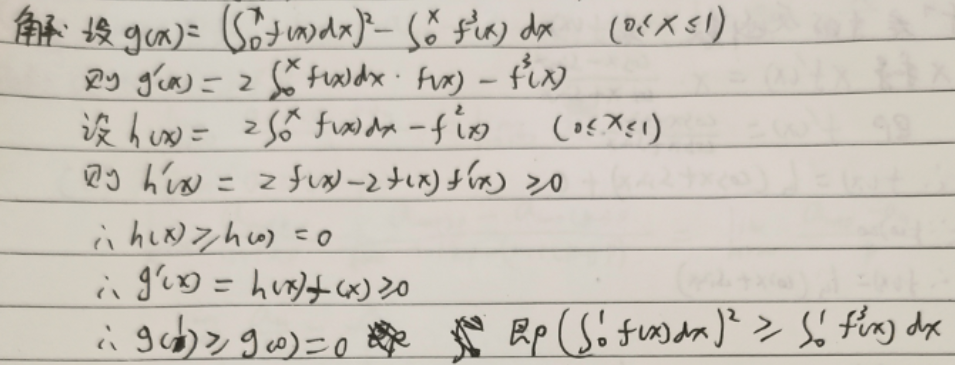 解: 设 g(x) = (∫₀ˣ f(x)dx)² - ∫₀ˣ f³(x) dx (0≤x≤1)
则 g'(x) = 2∫₀ˣ f(x)dx · f(x) - f³(x)
设 h(x) = 2∫₀ˣ f(x)dx - f²(x) (0≤x≤1)
则 h'(x) = 2f(x) - 2f(x)f'(x) ≥0
∴ h(x) ≥ h(0) = 0
∴ g'(x) = h(x)f(x) ≥0
∴ g(1) ≥ g(0) = 0 即 (∫₀¹ f(x)dx)² ≥ ∫₀¹ f³(x) dx